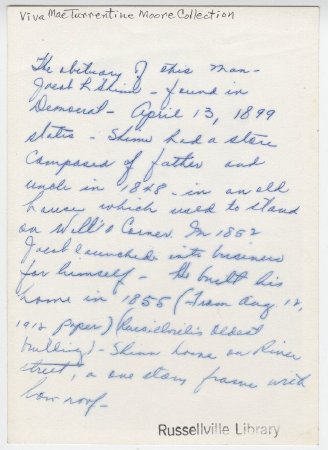 Viva Mae Turrentine Moore Collection
The obituary of this man -
Jacob L. Shinn - found in
Democrat - April 13, 1899
states - Shinn had a store
composed of father and
uncle in 1848 - in an old
house which used to stand
on Will's Corner. In 1852
Jacob launched into business
for himself - He built his
home in 1855 (From Aug. 12,
1912 paper) (Russellville's oldest
building) - Shinn home on River
street, a one story frame with
low roof -
Russellville Library